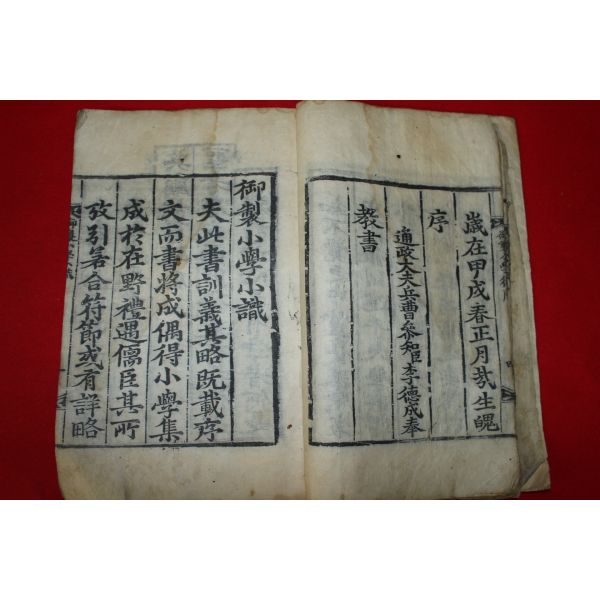 歲在甲戌春正月哉生魄
序
通政大夫兵曹參知臣李德成奉
敎書
御製小學小識
夫此書訓義其略旣載序
文而書將成偶得小學集
成於在野禮遇儒臣其所
攷引若合符節或有詳略